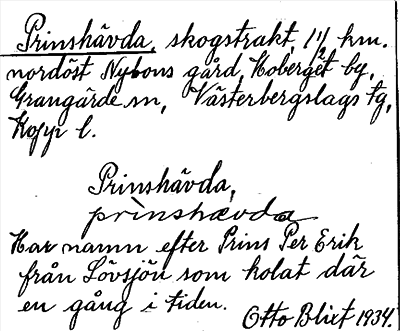 Prinshävda, skogstrakt, 1 1/2 km.
nordöst Nybons gård, Hoberget by,
Grangärde sn, Västerbergslags tg,
Kopp l.
Prinshävda,
prìnshævda
Har namn efter Prins Per Erik
från Lövsjön som kolat där
en gång i tiden. Otto Blixt 1934.